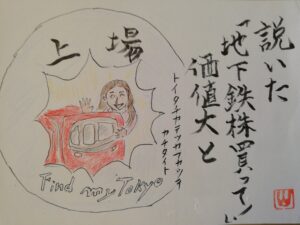 説いた
「地下鉄株買って!」
価値大と
トイタチカテツカフカツテ
カチタイト
上場
Find my Tokyo